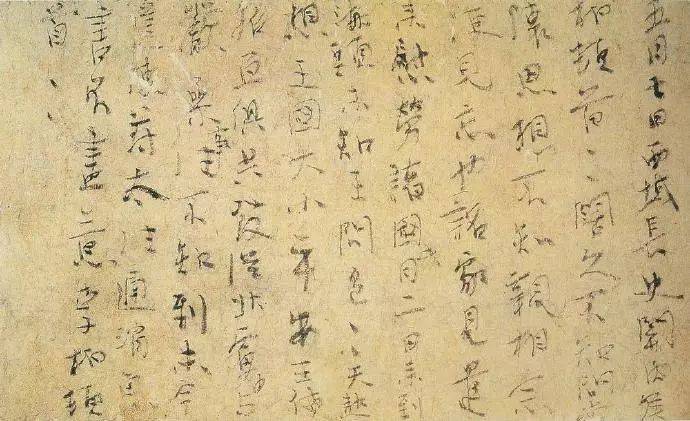 五月七日西域長史關內侯
柏頓首々々闊久不知問常
懷思想不知親相念
便見忘也詔家見遣
來慰勞諸國月二日來到
海頭未知王問邑々天熱
想王國大小平安王使
招亘俱共發從北虜中
嚴參事往不知到未今
遣使苻太往通消息
書不盡意李柏頓
首々々